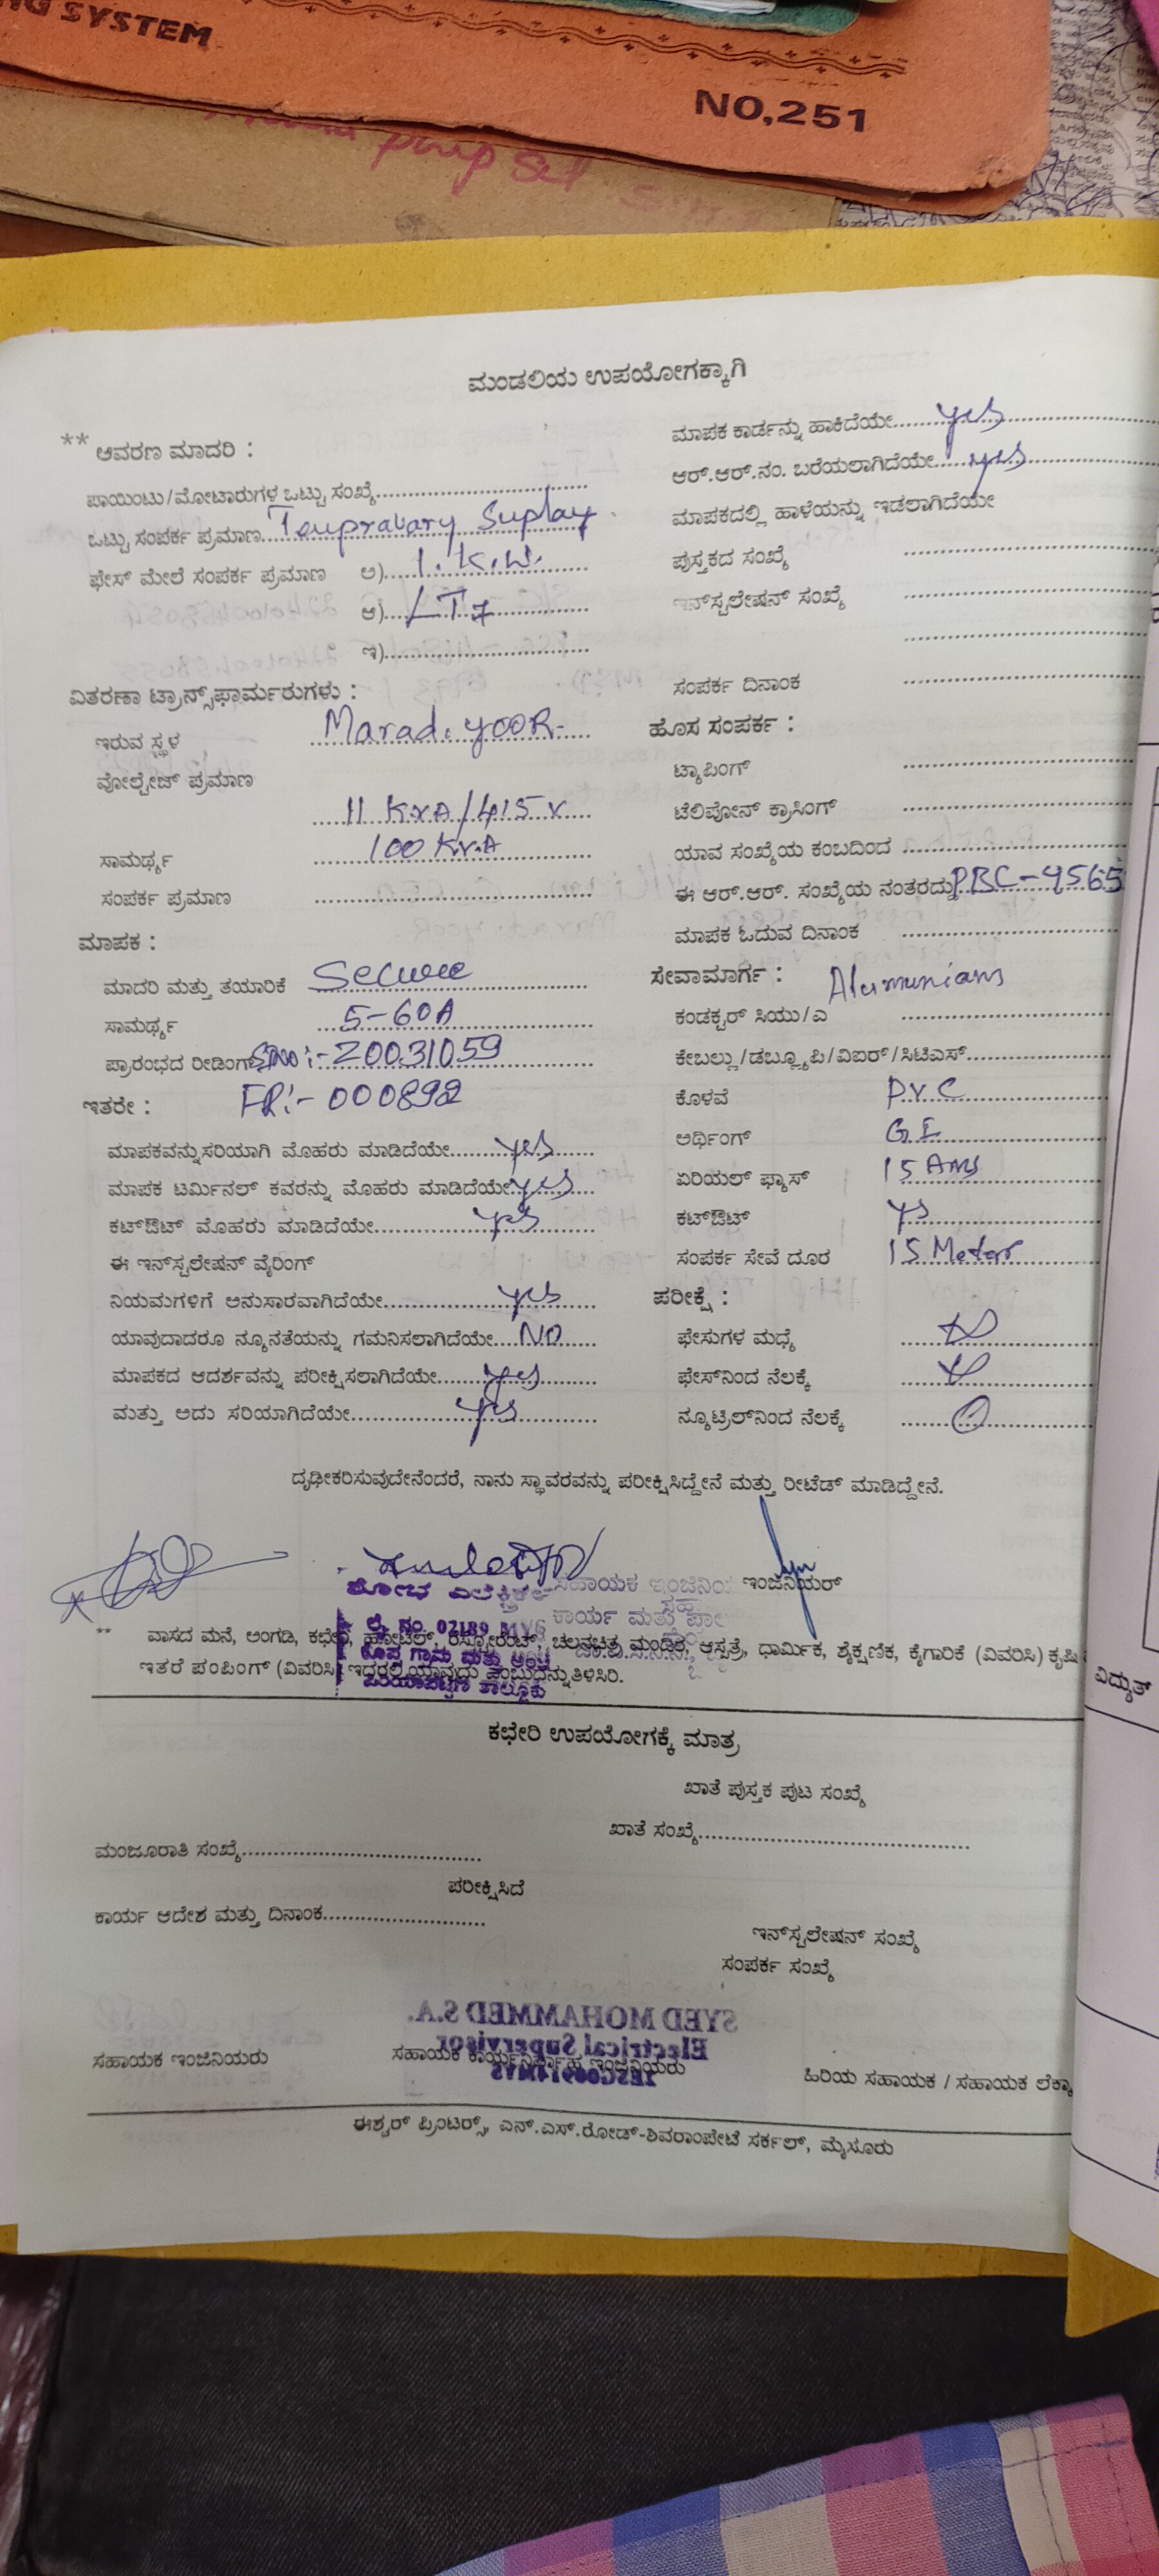 NG SYSTEM
NO,251
pump set
ಮಂಡಲಿಯ ಉಪಯೋಗಕ್ಕಾಗಿ
** ಆವರಣ ಮಾದರಿ :
ಪಾಯಿಂಟು/ಮೋಟಾರುಗಳ ಒಟ್ಟು ಸಂಖ್ಯೆ
ಒಟ್ಟು ಸಂಪರ್ಕ ಪ್ರಮಾಣ Temprabary Suplay
ಫೇಸ್ ಮೇಲೆ ಸಂಪರ್ಕ ಪ್ರಮಾಣ ಅ) 1.K.W.
ಆ) LT7
ಇ)
ವಿತರಣಾ ಟ್ರಾನ್ಸ್‌ಫಾರ್ಮರುಗಳು :
ಇರುವ ಸ್ಥಳ Maradi yooR
ವೋಲ್ಟೇಜ್ ಪ್ರಮಾಣ
11 KVA/415 V
ಸಾಮರ್ಥ್ಯ 100 Kv.A
ಸಂಪರ್ಕ ಪ್ರಮಾಣ
ಮಾಪಕ :
ಮಾದರಿ ಮತ್ತು ತಯಾರಿಕೆ Secure
ಸಾಮರ್ಥ್ಯ 5-60A
ಪ್ರಾರಂಭದ ರೀಡಿಂಗ್ SNo:-20031059
ಇತರೇ : FR:- 000892
ಮಾಪಕವನ್ನು ಸರಿಯಾಗಿ ಮೊಹರು ಮಾಡಿದೆಯೇ yes
ಮಾಪಕ ಟರ್ಮಿನಲ್ ಕವರನ್ನು ಮೊಹರು ಮಾಡಿದೆಯೇ yes
ಕಟ್‌ಔಟ್ ಮೊಹರು ಮಾಡಿದೆಯೇ yes
ಈ ಇನ್‌ಸ್ಟಲೇಷನ್ ವೈರಿಂಗ್
ನಿಯಮಗಳಿಗೆ ಅನುಸಾರವಾಗಿದೆಯೇ yes
ಯಾವುದಾದರೂ ನ್ಯೂನತೆಯನ್ನು ಗಮನಿಸಲಾಗಿದೆಯೇ NO
ಮಾಪಕದ ಆದರ್ಶವನ್ನು ಪರೀಕ್ಷಿಸಲಾಗಿದೆಯೇ yes
ಮತ್ತು ಅದು ಸರಿಯಾಗಿದೆಯೇ yes
ಮಾಪಕ ಕಾರ್ಡನ್ನು ಹಾಕಿದೆಯೇ yes
ಆರ್.ಆರ್.ನಂ. ಬರೆಯಲಾಗಿದೆಯೇ yes
ಮಾಪಕದಲ್ಲಿ ಹಾಳೆಯನ್ನು ಇಡಲಾಗಿದೆಯೇ
ಪುಸ್ತಕದ ಸಂಖ್ಯೆ
ಇನ್‌ಸ್ಟಲೇಷನ್ ಸಂಖ್ಯೆ
ಸಂಪರ್ಕ ದಿನಾಂಕ
ಹೊಸ ಸಂಪರ್ಕ :
ಟ್ಯಾಪಿಂಗ್
ಟೆಲಿಫೋನ್ ಕ್ರಾಸಿಂಗ್
ಯಾವ ಸಂಖ್ಯೆಯ ಕಂಬದಿಂದ
ಈ ಆರ್.ಆರ್. ಸಂಖ್ಯೆಯ ನಂತರದ್ದು PBC-9565
ಮಾಪಕ ಓದುವ ದಿನಾಂಕ
ಸೇವಾಮಾರ್ಗ : Alumunians
ಕಂಡಕ್ಟರ್ ಸಿಯು/ಎ
ಕೇಬಲ್ಲು/ಡಬ್ಲ್ಯೂಪಿ/ವಿಐರ್/ಸಿಟಿಎಸ್
ಕೊಳವೆ P.V.C
ಅರ್ಥಿಂಗ್ G.I
ಏರಿಯಲ್ ಫ್ಯೂಸ್ 15 Ams
ಕಟ್‌ಔಟ್ ys
ಸಂಪರ್ಕ ಸೇವೆ ದೂರ 15 Meter
ಪರೀಕ್ಷೆ :
ಫೇಸುಗಳ ಮಧ್ಯೆ
ಫೇಸ್‌ನಿಂದ ನೆಲಕ್ಕೆ
ನ್ಯೂಟ್ರಿಲ್‌ನಿಂದ ನೆಲಕ್ಕೆ
ದೃಢೀಕರಿಸುವುದೇನೆಂದರೆ, ನಾನು ಸ್ಥಾವರವನ್ನು ಪರೀಕ್ಷಿಸಿದ್ದೇನೆ ಮತ್ತು ರೀಟೆಡ್ ಮಾಡಿದ್ದೇನೆ.
ಇಂಜಿನಿಯರ್
ಶೋಭ ಎಲೆಕ್ಟ್ರಿಕಲ್
ಸಹಾಯಕ ಇಂಜಿನಿಯ
ಲೈ. ನಂ. 02189
ಕಾರ್ಯ ಮತ್ತು ಪಾಲ
** ವಾಸದ ಮನೆ, ಅಂಗಡಿ, ಕಛೇರಿ, ಹೋಟೆಲ್, ರೆಸ್ಟೋರೆಂಟ್, ಚಲನಚಿತ್ರ ಮಂದಿರ, ಆಸ್ಪತ್ರೆ, ಧಾರ್ಮಿಕ, ಶೈಕ್ಷಣಿಕ, ಕೈಗಾರಿಕೆ (ವಿವರಿಸಿ) ಕೃಷಿ
ಇತರೆ ಪಂಪಿಂಗ್ (ವಿವರಿಸಿ) ಇದರಲ್ಲಿ ಯಾವುದು ಎಂಬುದನ್ನು ತಿಳಿಸಿರಿ.
ಪಿರಿಯಾಪಟ್ಟಣ ತಾಲ್ಲೂಕು
ವಿದ್ಯುತ್
ಕಛೇರಿ ಉಪಯೋಗಕ್ಕೆ ಮಾತ್ರ
ಖಾತೆ ಪುಸ್ತಕ ಪುಟ ಸಂಖ್ಯೆ
ಖಾತೆ ಸಂಖ್ಯೆ
ಮಂಜೂರಾತಿ ಸಂಖ್ಯೆ
ಪರೀಕ್ಷಿಸಿದೆ
ಕಾರ್ಯ ಆದೇಶ ಮತ್ತು ದಿನಾಂಕ
ಇನ್‌ಸ್ಟಲೇಷನ್ ಸಂಖ್ಯೆ
ಸಂಪರ್ಕ ಸಂಖ್ಯೆ
SYED MOHAMMED S.A.
Electrical Supervisor
ಸಹಾಯಕ ಇಂಜಿನಿಯರು
ಸಹಾಯಕ ಕಾರ್ಯನಿರ್ವಾಹಕ ಇಂಜಿನಿಯರು
ಹಿರಿಯ ಸಹಾಯಕ / ಸಹಾಯಕ ಲೆಕ್ಕಾ
ಈಶ್ವರ್ ಪ್ರಿಂಟರ್ಸ್, ಎನ್.ಎಸ್.ರೋಡ್-ಶಿವರಾಂಪೇಟೆ ಸರ್ಕಲ್, ಮೈಸೂರು